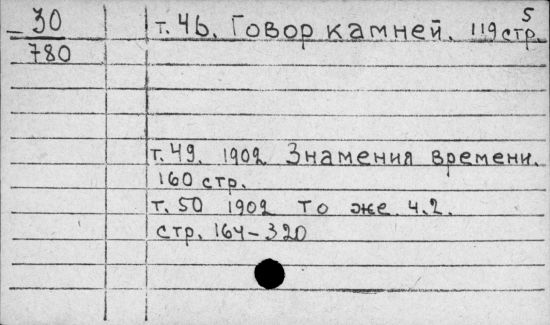 5
30 т. 46. Говор камней. 119 стр.
780
т. 49. 1902 Знамения времени.
160 стр.
т. 50 1902 То же ч. 2.
стр. 164-320